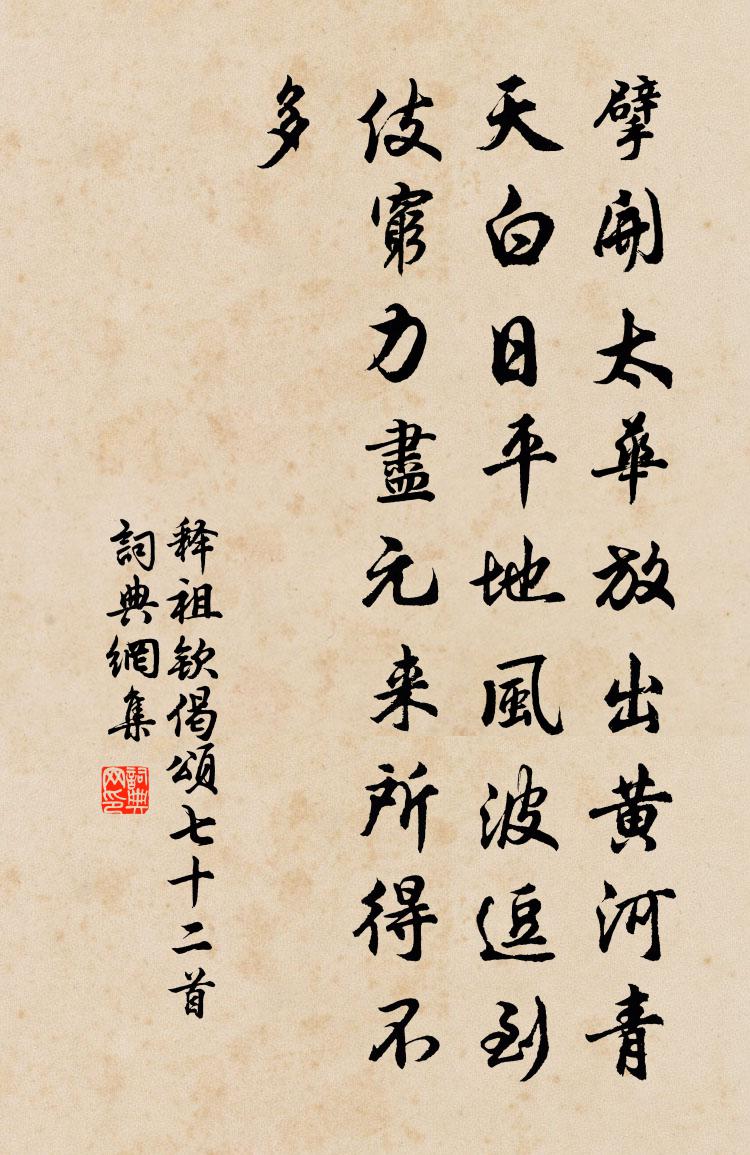 擘開太華放出黄河青
天白日平地風波逗到
伎窮力盡元来所得不
多
释祖欽偈頌七十二首
詞典網集
詞典网印